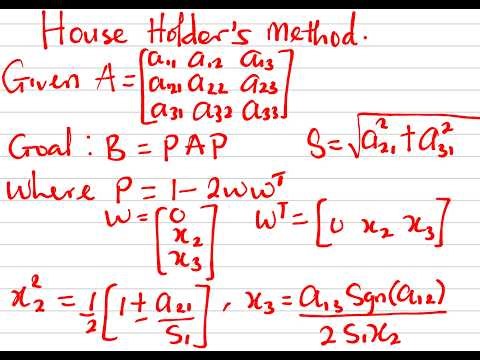 House Holder's Method.
Given A = [a11 a12 a13
a21 a22 a23
a31 a32 a33]
Goal : B = PAP S = √(a²21 + a²31)
where P = 1 - 2wwᵀ
W = [0 x2 x3] Wᵀ = [0 x2 x3]
x2² = 1/2 [1 ± a21/S1] , x3 = a13 Sgn(a12) / 2S1x2